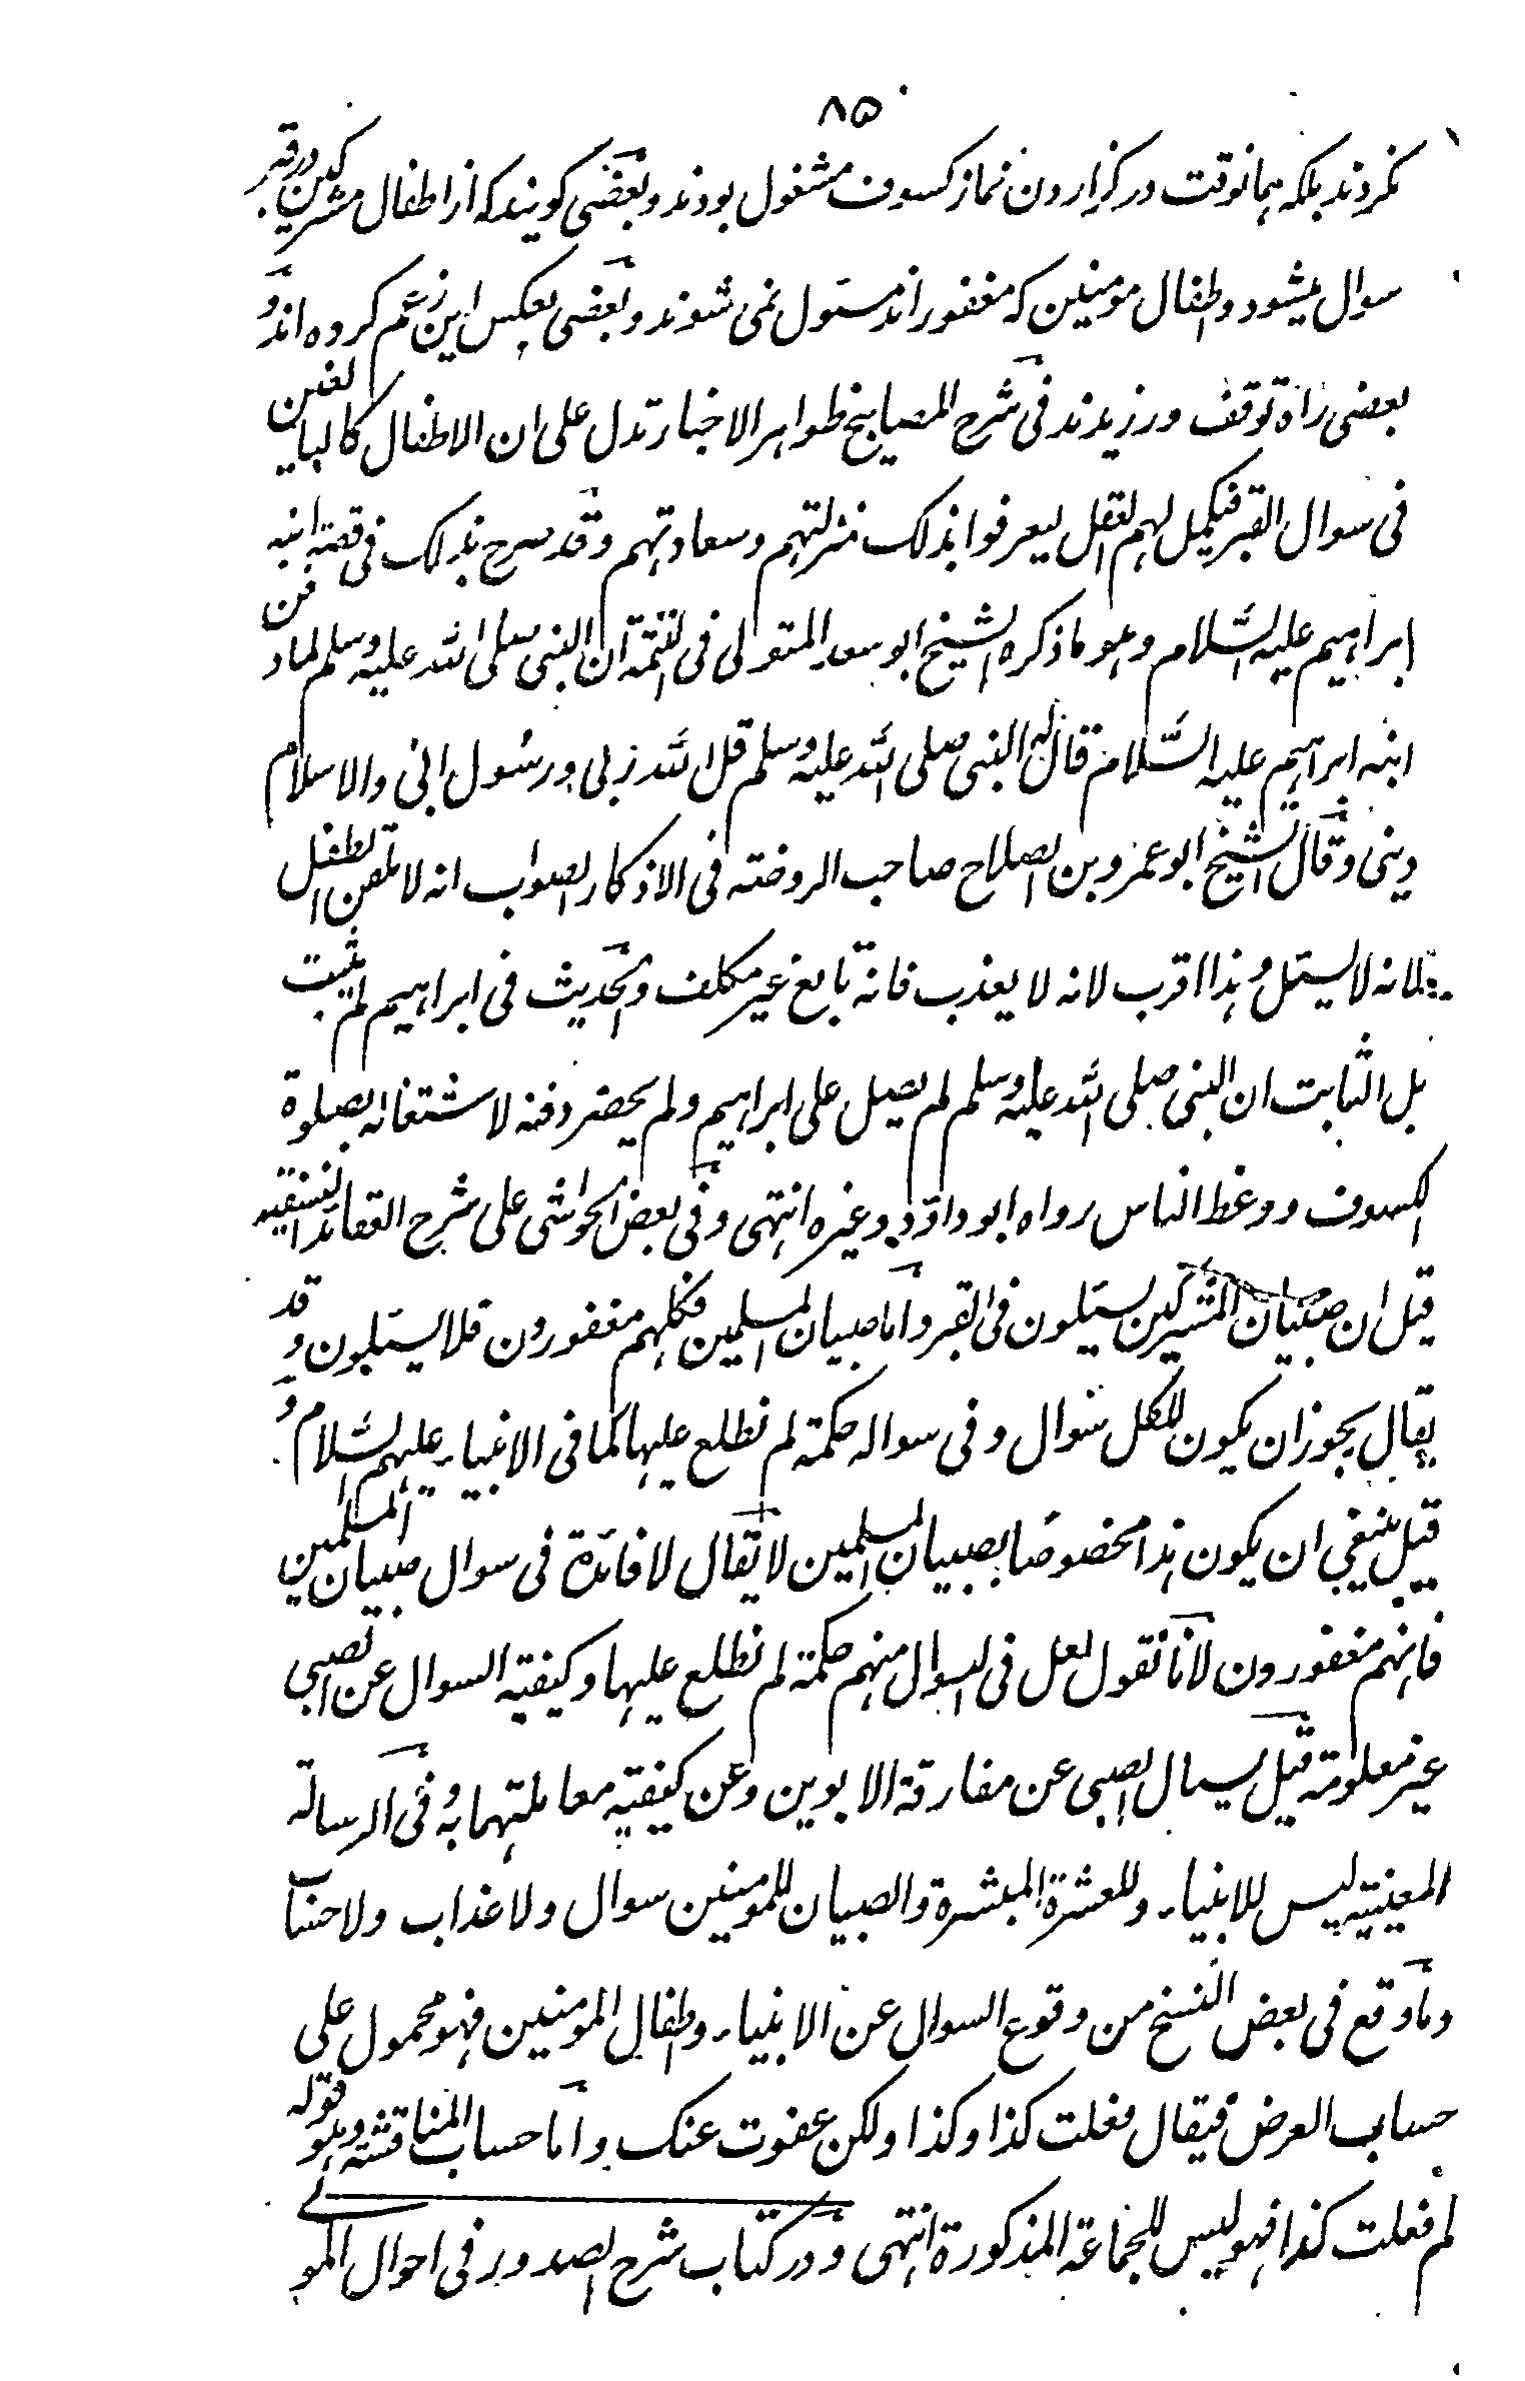 ۸۵
نکردند بلکه همانوقت در گزاردن نماز کسوف مشغول بودند و بعضی گویند که از اطفال مشرکین در قبر
سوال میشود و اطفال مومنین که مغفور اند مسئول نمی شوند و بعضی بعکس این زعم کرده اند و
بعضی راه توقف ورزیدند فی شرح المصابیح ظواهر الاخبار تدل علی ان الاطفال کالبالغین
فی سوال القبر فیکمل لهم العقل لیعرفوا بذلک منزلتهم و سعادتهم وقد صرح بذلک فی قصة ابنه
ابراهیم علیه السلام وهو ما ذکره الشیخ ابو سعد المتولی فی التتمة ان النبی صلی الله علیه وسلم لما دفن
ابنه ابراهیم علیه السلام قال له النبی صلی الله علیه وسلم قل الله ربی ورسول ابی والاسلام
دینی وقال الشیخ ابو عمرو بن الصلاح صاحب الروضته فی الاذکار الصواب انه لا تلقن الطفل
لانه لا یسئل وهذا اقرب لانه لا یعذب فانه تابع غیر مکلف والحدیث فی ابراهیم لم یثبت
بل الثابت ان النبی صلی الله علیه وسلم لم یصل علی ابراهیم ولم یحضر دفنه لاشتغاله بصلوة
الکسوف ووعظ الناس رواه ابو داود وغیره انتهی وفی بعض الحواشی علی شرح العقائد النسفیه
قیل ان صبیان المشرکین یسئلون فی القبر واما صبیان المسلمین فکلهم مغفورون فلا یسئلون وقد
یقال یجوز ان یکون للکل سوال وفی سواله حکمة لم نطلع علیها کما فی الانبیاء علیهم السلام و
قیل ینبغی ان یکون هذا مخصوصا بصبیان المسلمین لا یقال لا فائدة فی سوال صبیان المسلمین
فانهم مغفورون لانا نقول لعل فی السوال منهم حکمة لم نطلع علیها وکیفیة السوال عن الصبی
غیر معلومة قیل یسال الصبی عن مفارقة الابوین وعن کیفیة معاملتهما به وفی الرسالة
المعینیة لیس للانبیاء وللعشرة المبشرة والصبیان للمومنین سوال ولا عذاب ولا حساب
وما وقع فی بعض النسخ من وقوع السوال عن الانبیاء واطفال المومنین فهو محمول علی
حساب العرض فیقال فعلت کذا وکذا ولکن عفوت عنک واما حساب المناقشة وهو قوله
لم فعلت کذا فهو لیس للجماعة المذکورة انتهی و در کتاب شرح الصدور فی احوال المو